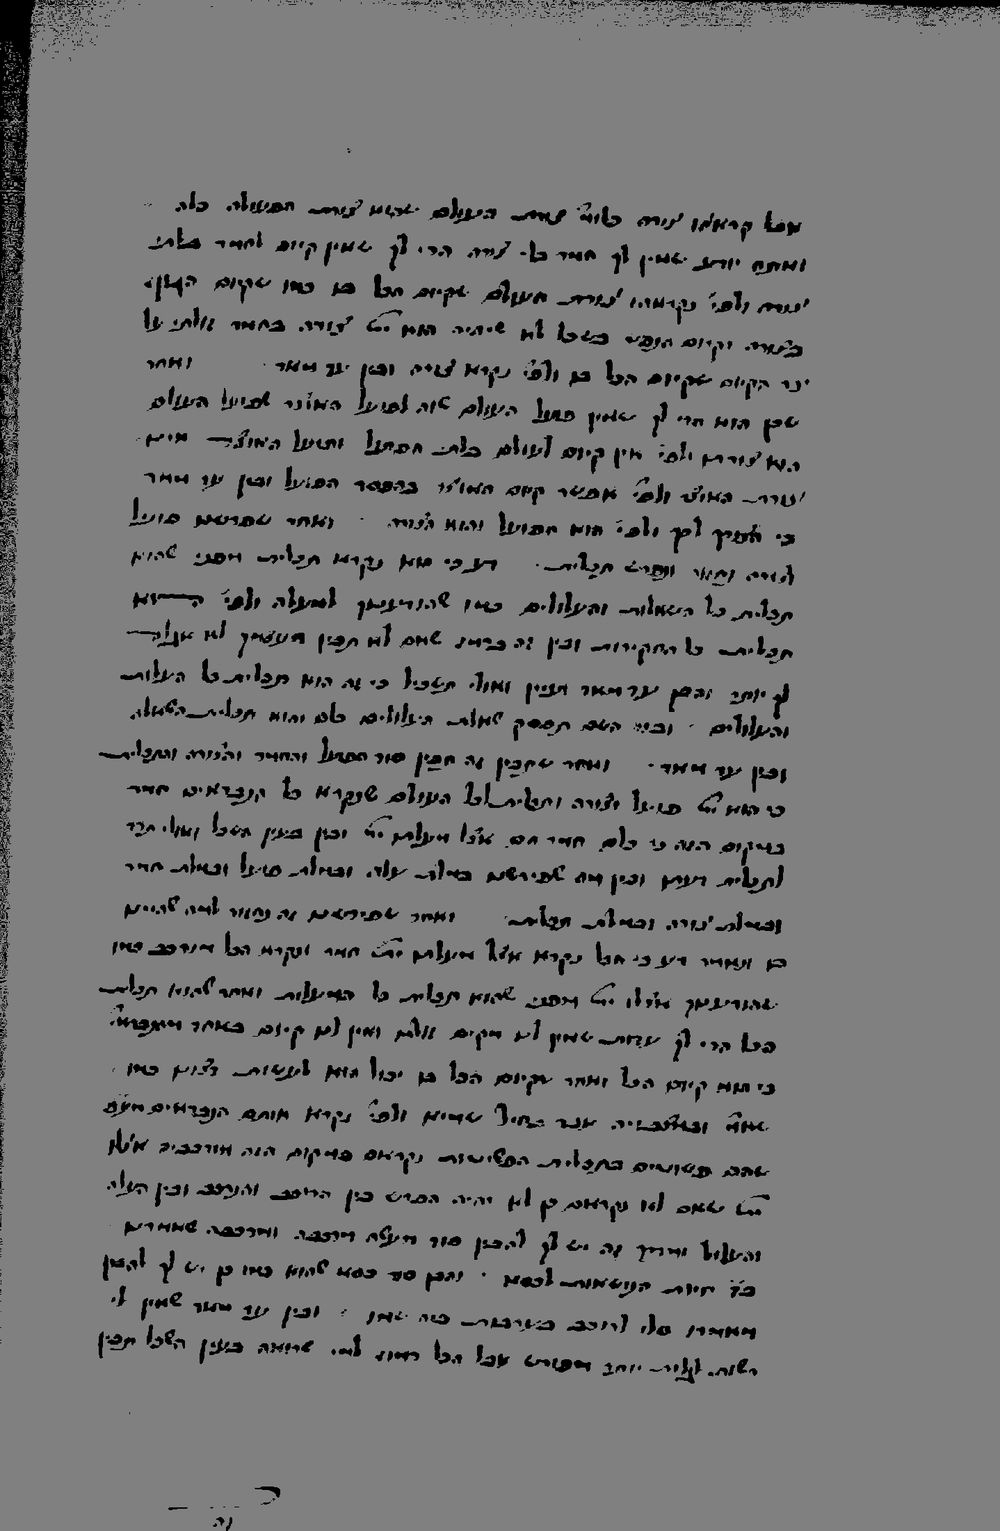 אבל קראוהו צורה כלומ׳ צורת העולם שהוא צורת הפעולה כלה
ואתה יודע שאין לך חמר בלי צורה הרי לך שאין קיום לחמר בלתי
צורה ולפי׳ נקראהו צורת העולם שקיום הכל בו כמו שקיום
בצורה וקיום הנפש בשכל לא שיהיה הוא ית׳ צורה בחמר אלא על
צד הקיום שקיום הכל בו ולפי׳ נקרא צורה והבן עד מאד ואחר
שכן הוא הרי לך שאין פועל העולם שוה לפועל האוצר שפועל העולם
הוא צורתו ולפי׳ אין קיום לעולם בלתי הפועל ופועל האוצר אינו
צורת האוצר ולפי׳ אפשר קיום האוצר בהפסד הפועל והבן עד מאד
כי לך ולפי׳ הוא הפועל והוא הצורה ואחר שפרשנו פועל
וצורה נחזור ונפרש תכלית דע כי הוא נקרא תכלית מפני שהוא
תכלית כל השאלות והעלולים כמו שהודעתיך למעלה ולפי׳ הוא
תכלית כל החקירות והבן זה ברמז שאם לא תבין מעצמך לא אגלה
לך יותר והבן עד מאד העניין ואולי תשכיל כי זה הוא תכלית כל העלות
והעלולים ובזה השם תפסק שאלת העלולים כלם והוא תכלית השאלה
והבן עד מאד ואחר שתבין זה תבין סוד הפועל והחמר והצורה והתכלית
כי הוא ית׳ פועל וצורה ותכלית לכל העולם שנקרא כל הנבראים חמר
במקום הזה כי כלם חמר הם אצל מעלתו ית׳ והבן בעין השכל ואולי תבא
לתכלית דעתו והבן מה שפירשנו במלת עלה ובמלת פועל ובמלת חמר
ובמלת צורה ובמלת תכלית ואחר שפירשנו זה נחזור למה שהיינו
בו ונאמר דע כי הכל נקרא אצל מעלתו ית׳ חמר ונקרא הכל מורכב כמו
שהודעתיך אצלו ית׳ מפני שהוא תכלית כל המעלות ואחר שהוא תכלית
הכל הרי לך עדות שאין לו מקים אלא ואין לו קיום באחד מנבראיו
כי הוא קיום הכל ואחר שקיום הכל בו יכול הוא לעשות רצונו כמו
שאמ׳ ובארבעה עבד בחיל שמיא ולפי׳ נקרא אותם הנבראים
שהם פשוטים בתכלית הפשיטות נקראים במקום הזה מורכבים אצלו
ית׳ שאם לא נקראם כן לא יהיה הפרש בין הרוכב והנרכב ובין העלה
והעלול ומדרך זה יש לך להבין סוד מעשה מרכבה ומרכבה שאומרים
בה׳ חיות הנושאות לכסא והבן סוד כסא שהוא כמו כן יש לך להבין
מאמרו סלו לרוכב בערבות ביה שמו והבן עד מאד שאין לי
רשות לגלות יותר מפורש אבל הכל רמוז למי שרואה בעין השכל תבין